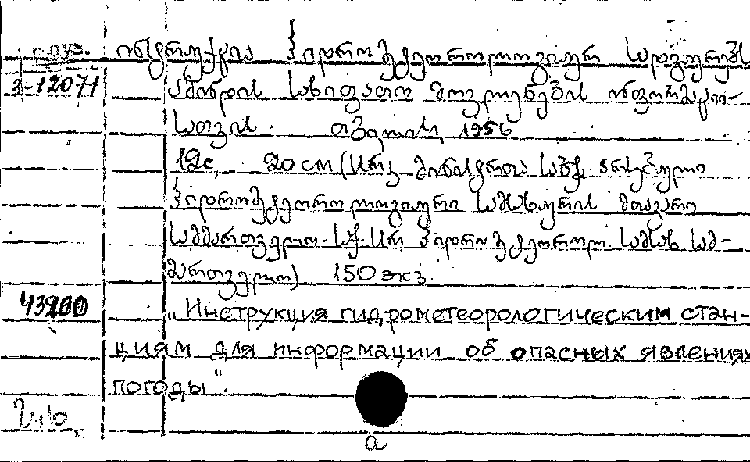 ინსტრუქცია ჰიდრომეტეოროლოგიურ სადგურებს
3-12071 ამინდის სახიფათო მოვლენების ინფორმაცი-
სათვის. თბილისი, 1956
12с, 20 см (სსრკ მინისტრთა საბჭ.
ჰიდრომეტეოროლოგიური სამსახურის მთავარი
სამმართველო. საქ. სსრ ჰიდრომეტეოროლ. სამსახ. სამ-
მართველო) 150 экз.
43200 „Инструкция гидрометеорологическим стан-
циям для информации об опасных явлениях
погоды".
а